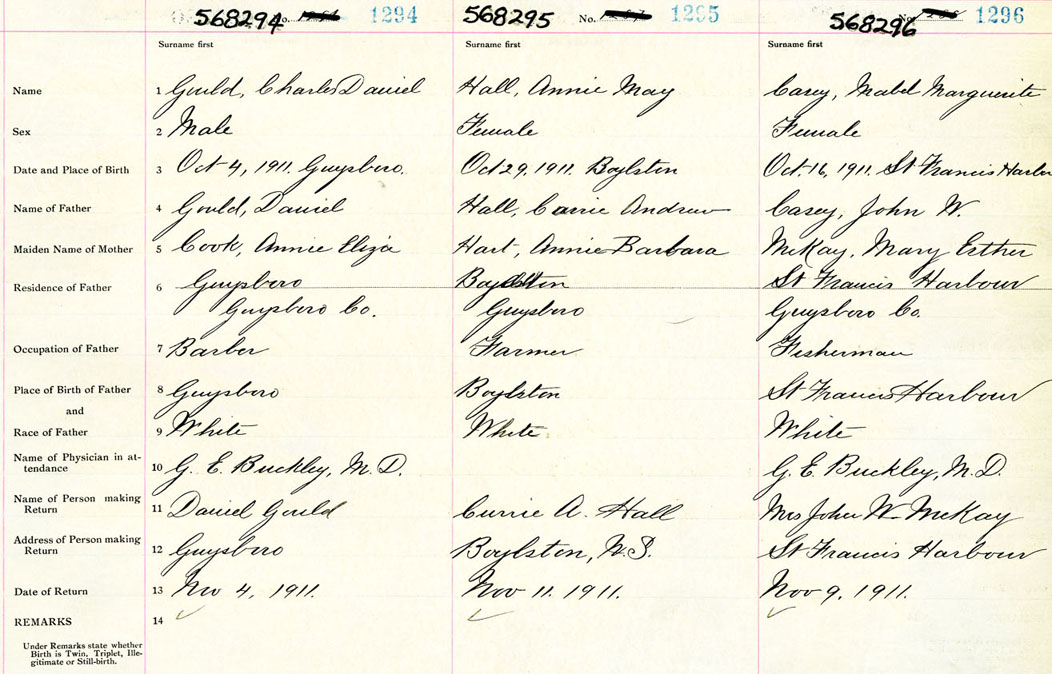 568294 No. 1294 568295 No. 1295 568296 No. 1296
Surname first Surname first Surname first
Name 1 Gould, Charles Daniel Hall, Annie May Casey, Mabel Marguerite
Sex 2 Male Female Female
Date and Place of Birth 3 Oct 4, 1911. Guysboro. Oct 29, 1911. Boylston Oct. 16, 1911. St Francis Harbor
Name of Father 4 Gould, Daniel Hall, Currie Andrew Casey, John W.
Maiden Name of Mother 5 Cook, Annie Eliza Hart, Annie Barbara McKay, Mary Esther
Residence of Father 6 Guysboro Boylston St Francis Harbour
Guysboro Co. Guysboro Guysboro Co.
Occupation of Father 7 Barber Farmer Fisherman
Place of Birth of Father 8 Guysboro Boylston St Francis Harbour
and
Race of Father 9 White White White
Name of Physician in at-
tendance 10 G. E. Buckley, M.D. G. E. Buckley, M.D.
Name of Person making
Return 11 Daniel Gould Currie A. Hall Mrs John W. McKay
Address of Person making
Return 12 Guysboro Boylston, N.S. St Francis Harbour
Date of Return 13 Nov 4, 1911. Nov 11. 1911. Nov 9, 1911.
REMARKS 14
Under Remarks state whether
Birth is Twin, Triplet, Ille-
gitimate or Still-birth.